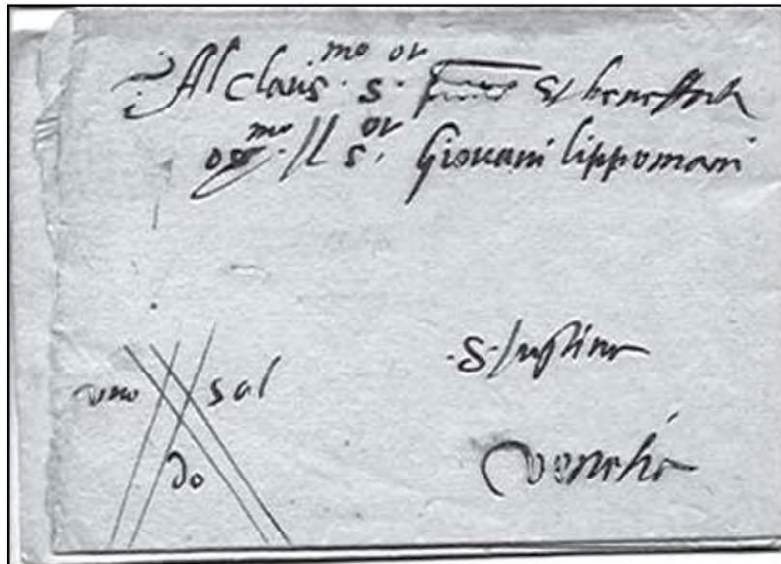 Al Claris.mo s.or et
s.or Giovani lippomani
uno sal
do
.S. Justina
venetia